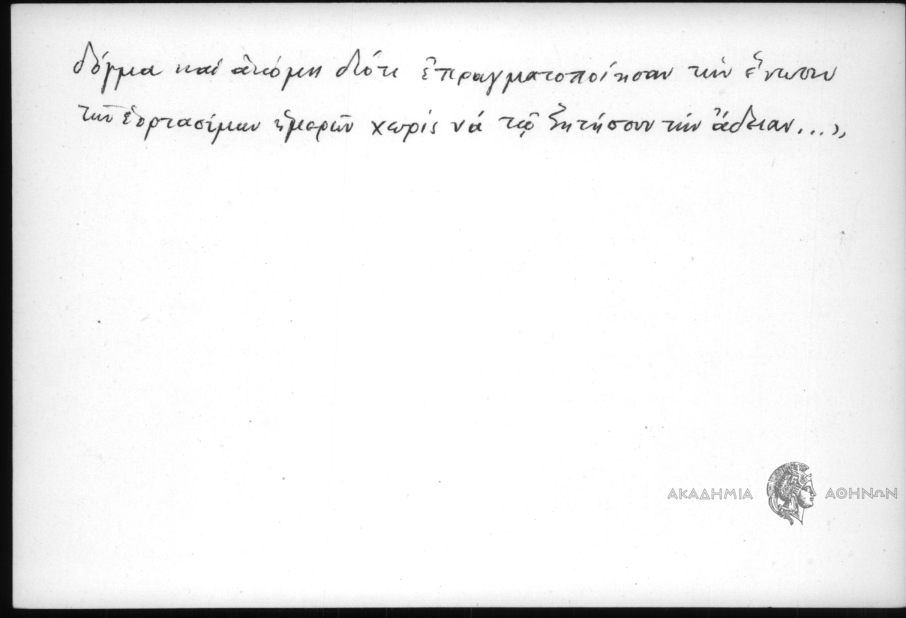 δόγμα καί ἀκόμη διότι ἐπραγματοποίησαν τήν ἕνωσιν
τῶν ἑορτασίμων ἡμερῶν χωρίς νά τῷ ζητήσουν τήν ἄδειαν...»
ΑΚΑΔΗΜΙΑ ΑΘΗΝΩΝ